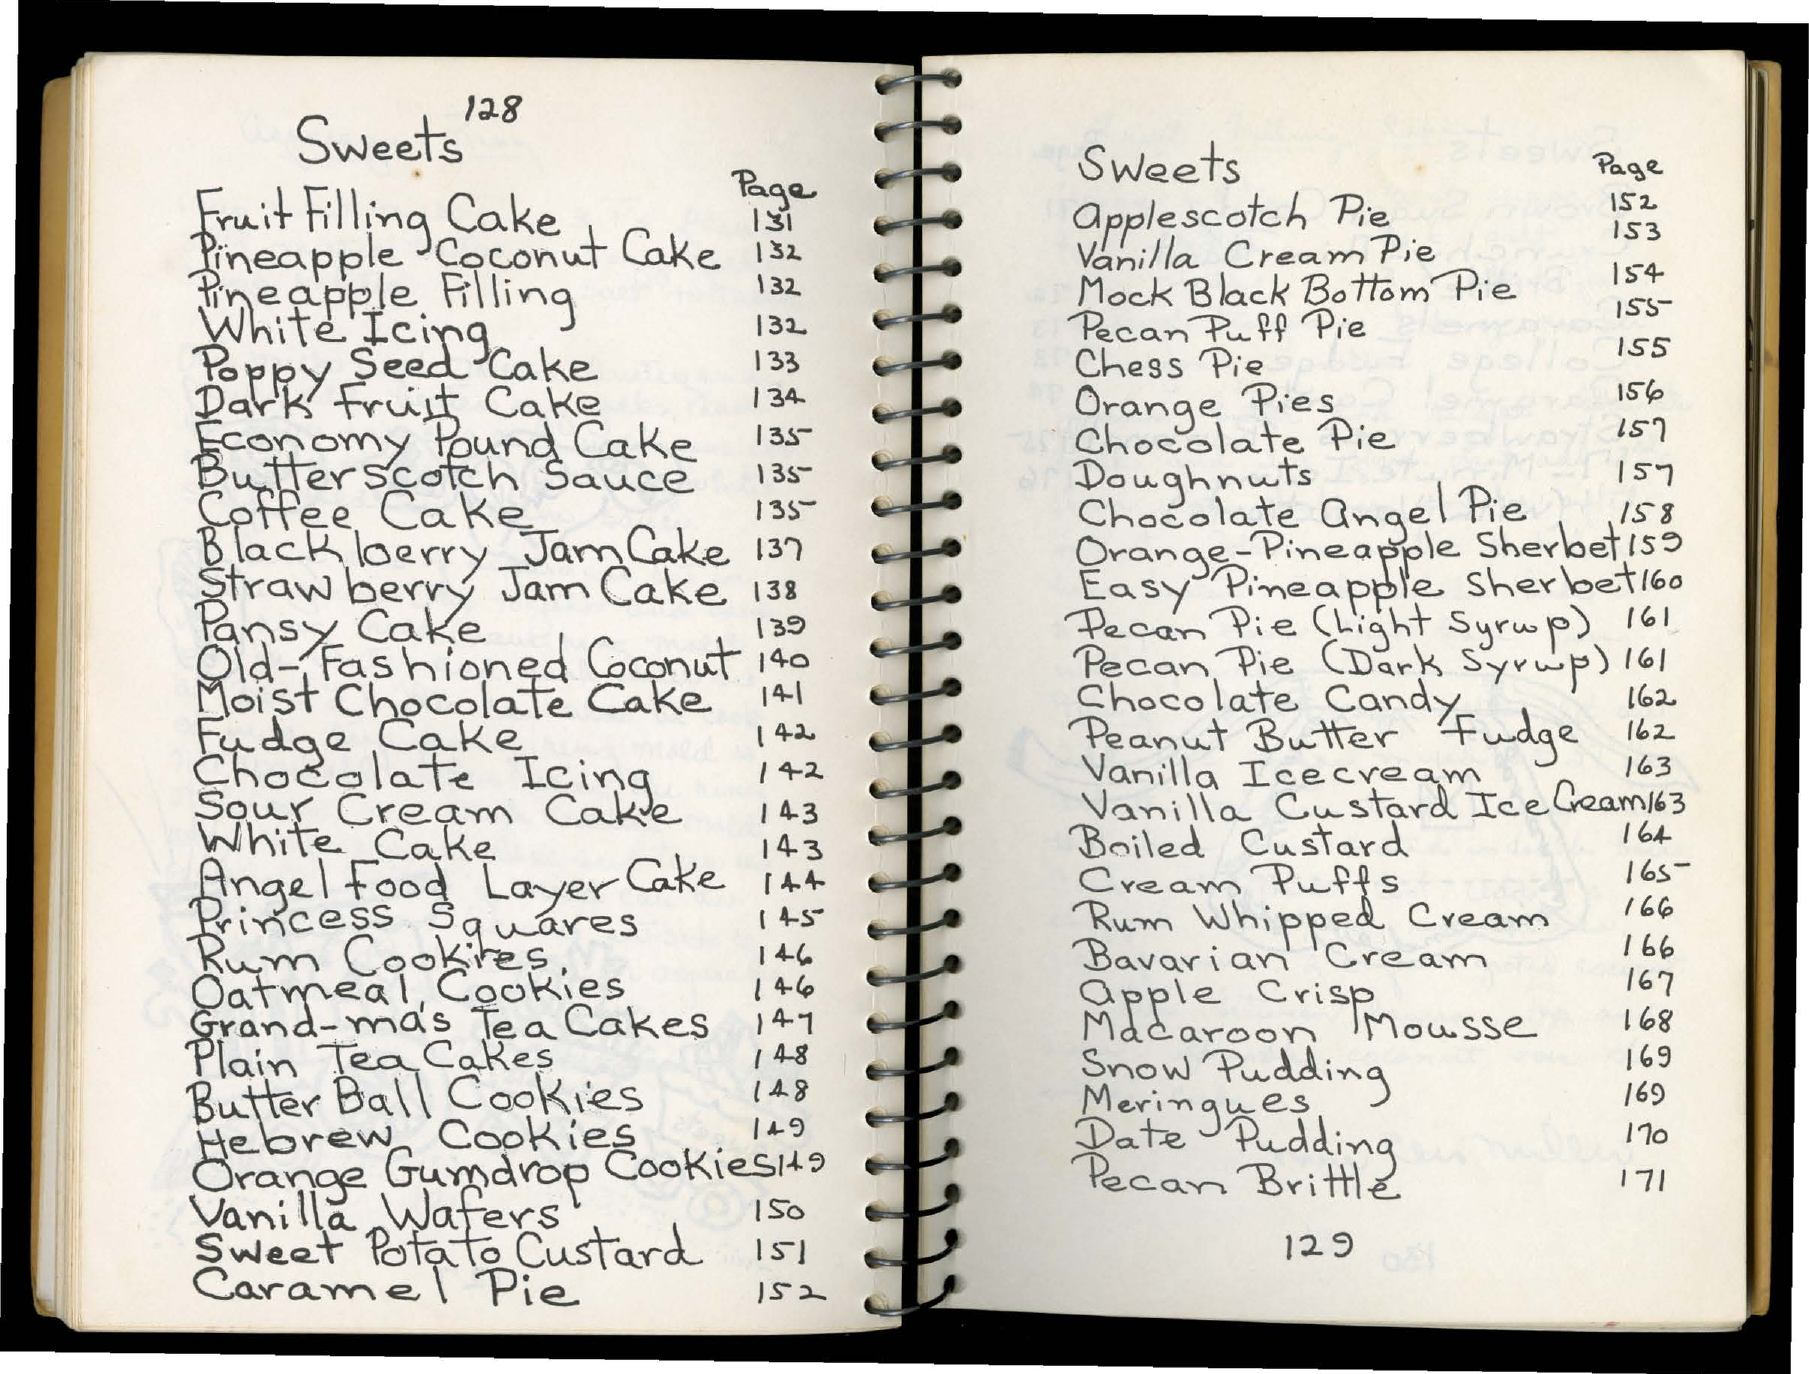 128
Sweets
Page
Fruit Filling Cake 131
Pineapple Coconut Cake 132
Pineapple Filling 132
White Icing 132
Poppy Seed Cake 133
Dark Fruit Cake 134
Economy Pound Cake 135
Butterscotch Sauce 135
Coffee Cake 135
Blackberry Jam Cake 137
Strawberry Jam Cake 138
Pansy Cake 139
Old-Fashioned Coconut 140
Moist Chocolate Cake 141
Fudge Cake 142
Chocolate Icing 142
Sour Cream Cake 143
White Cake 143
Angel Food Layer Cake 144
Princess Squares 145
Rum Cookies 146
Oatmeal Cookies 146
Grand-ma's Tea Cakes 147
Plain Tea Cakes 148
Butter Ball Cookies 148
Hebrew Cookies 149
Orange Gumdrop Cookies 149
Vanilla Wafers 150
Sweet Potato Custard 151
Caramel Pie 152
Sweets
Page
Applescotch Pie 152
Vanilla Cream Pie 153
Mock Black Bottom Pie 154
Pecan Puff Pie 155
Chess Pie 155
Orange Pies 156
Chocolate Pie 157
Doughnuts 157
Chocolate Angel Pie 158
Orange-Pineapple Sherbet 159
Easy Pineapple Sherbet 160
Pecan Pie (Light Syrup) 161
Pecan Pie (Dark Syrup) 161
Chocolate Candy 162
Peanut Butter Fudge 162
Vanilla Icecream 163
Vanilla Custard Ice Cream 163
Boiled Custard 164
Cream Puffs 165
Rum Whipped Cream 166
Bavarian Cream 166
Apple Crisp 167
Macaroon Mousse 168
Snow Pudding 169
Meringues 169
Date Pudding 170
Pecan Brittle 171
129